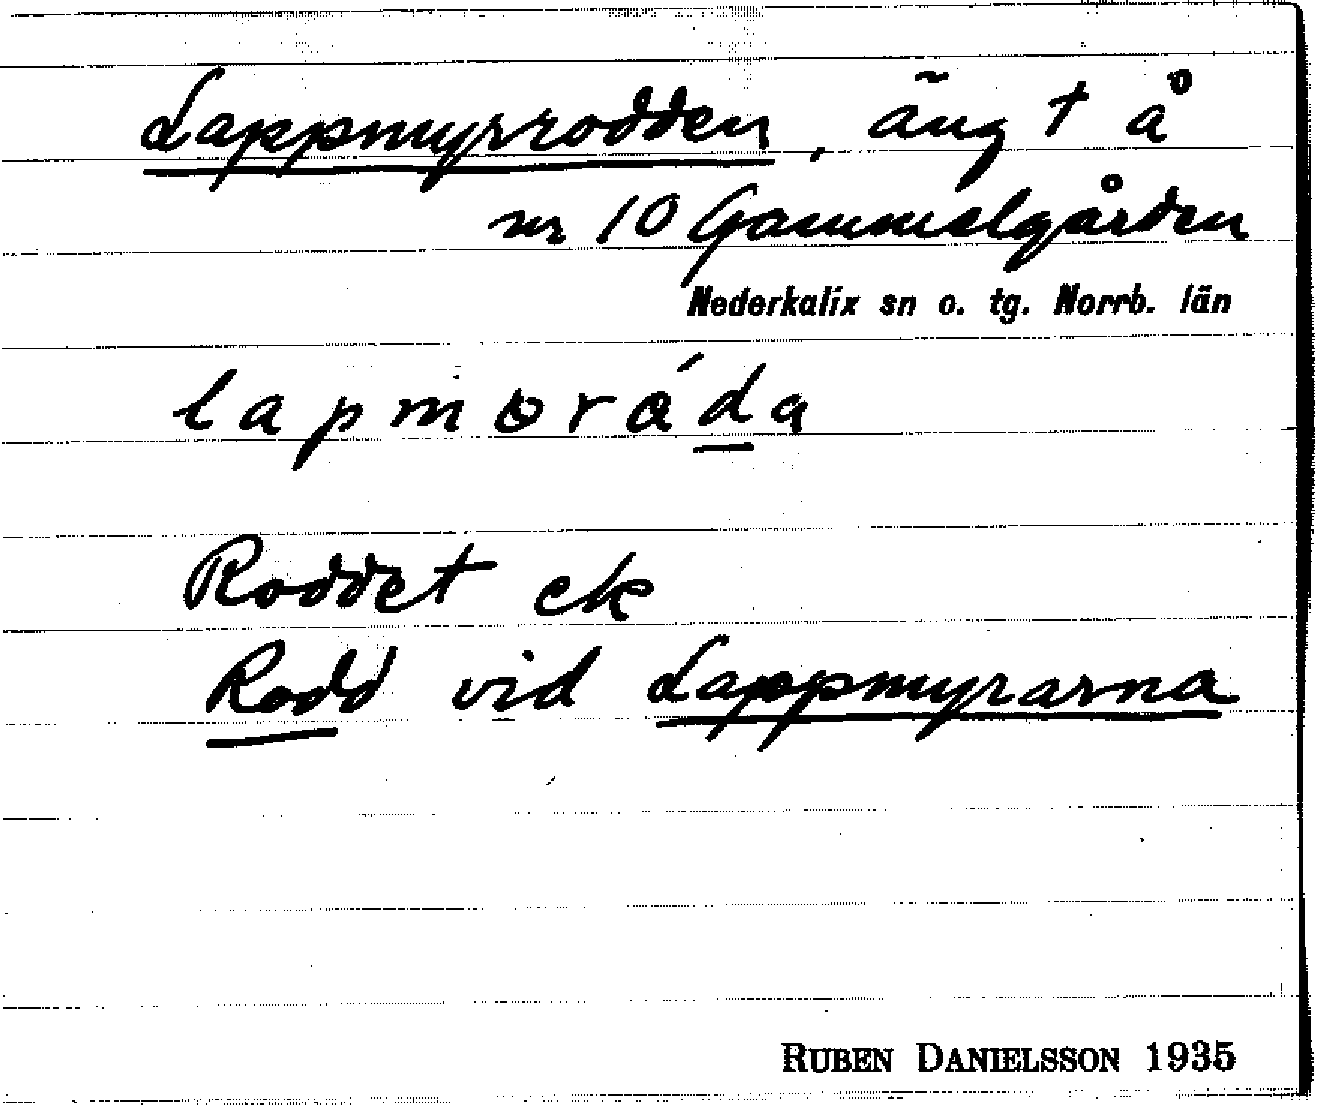 Lappmyrrodden, äng † å
nr 10 Gammelgården
Nederkalix sn o. tg. Norrb. län
Roddet ek
Rodd vid Lappmyrarna
RUBEN DANIELSSON 1935